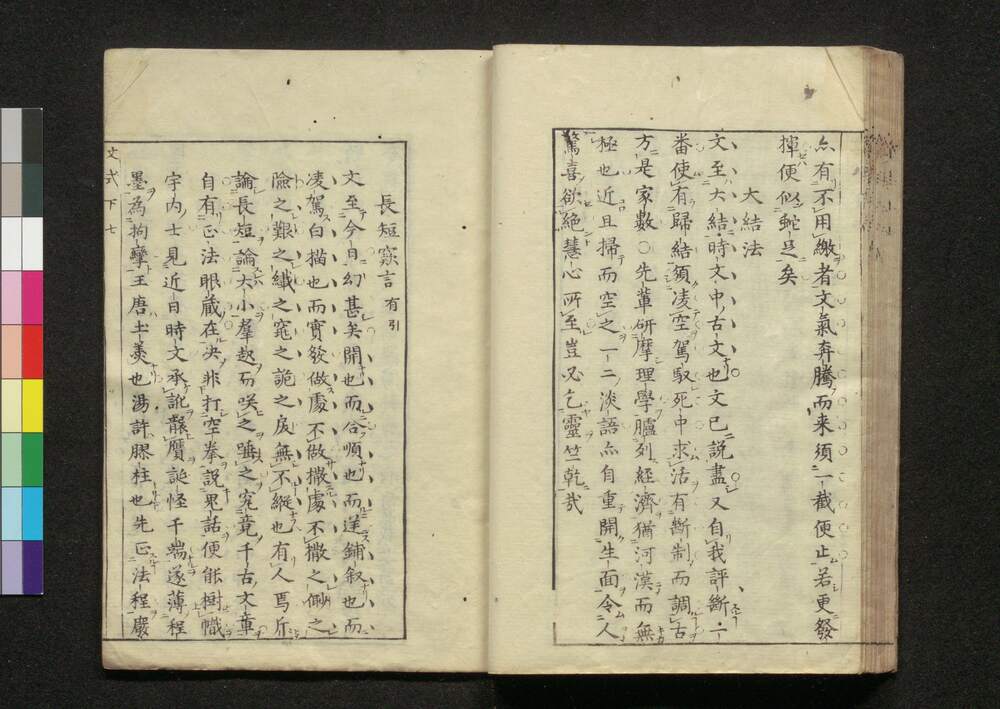 亦有不用繳者文氣奔騰而来須一截便止若更發
揮便似蛇足矣
大結法
文至大結時文中古文也文已說盡又自我評斷一
番使有歸結須凌空駕馭死中求活有斷制而調古
方是家數○先軰研摩理學臚列經濟猶河漢而無
極也近且掃而空之一二淡語亦自重開生面令人
驚喜欲絶慧心所至豈必乞靈竺乾㢤
長短寐言有引
文至今日幻甚矣開也而合順也而逆鋪叙也而
凌駕白描也而實發做處不做撒處不撒之俶之
險之艱之纎之窕之詭之戾無不縱也有人焉斤
論長短論大小羣起而咲之唾之究竟千古文章
自有正法眼蔵在决非打空拳說鬼話便能樹幟
宇内士見近日時文承訛襲贋誕怪千端遂薄程
墨為拘攣王唐土羮也湯許膠柱也先正法程嚴
文式下七